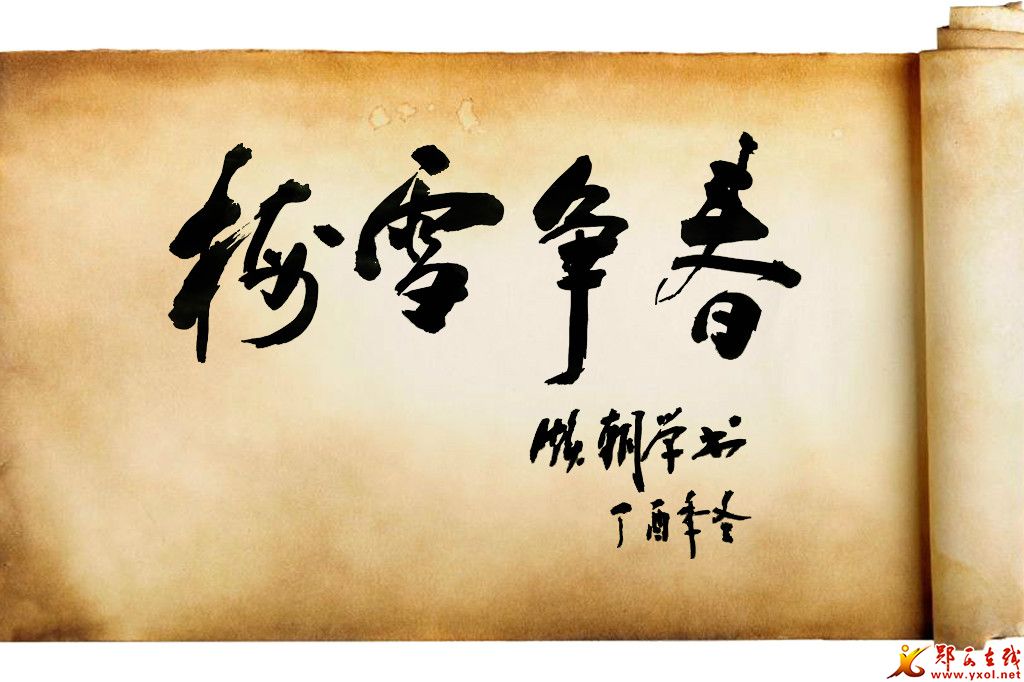 梅雪争春
朝学书
丁酉年冬
郧西在线
www.yxol.net